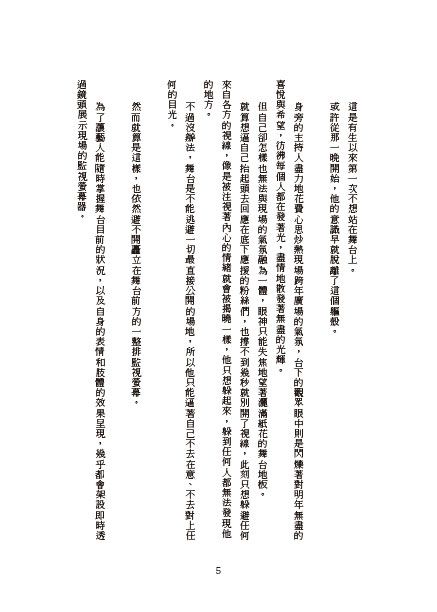 這是有生以來第一次不想站在舞台上。
或許從那一晚開始，他的意識早就脫離了這個軀殼。
身旁的主持人盡力地花費心思炒熱現場跨年廣場的氣氛，台下的觀眾眼中則是閃爍著對明年無盡的
喜悅與希望，彷彿每個人都在發著光，盡情地散發著無盡的光輝。
但自己卻怎樣也無法與現場的氣氛融為一體，眼神只能失焦地望著灑滿紙花的舞台地板。
就算想逼自己抬起頭去回應在底下應援的粉絲們，也撐不到幾秒就別開了視線，此刻只想躲避任何
來自各方的視線，像是被注視著內心的情緒就會被揭曉一樣，他只想躲起來，躲到任何人都無法發現他
的地方。
不過沒辦法，舞台是不能逃避一切最直接公開的場地，所以他只能逼著自己不去在意、不去對上任
何的目光。
然而就算是這樣，也依然避不開矗立在舞台前方的一整排監視螢幕。
為了讓藝人能隨時掌握舞台目前的狀況，以及自身的表情和肢體的效果呈現，幾乎都會架設即時透
過鏡頭展示現場的監視螢幕器。
5